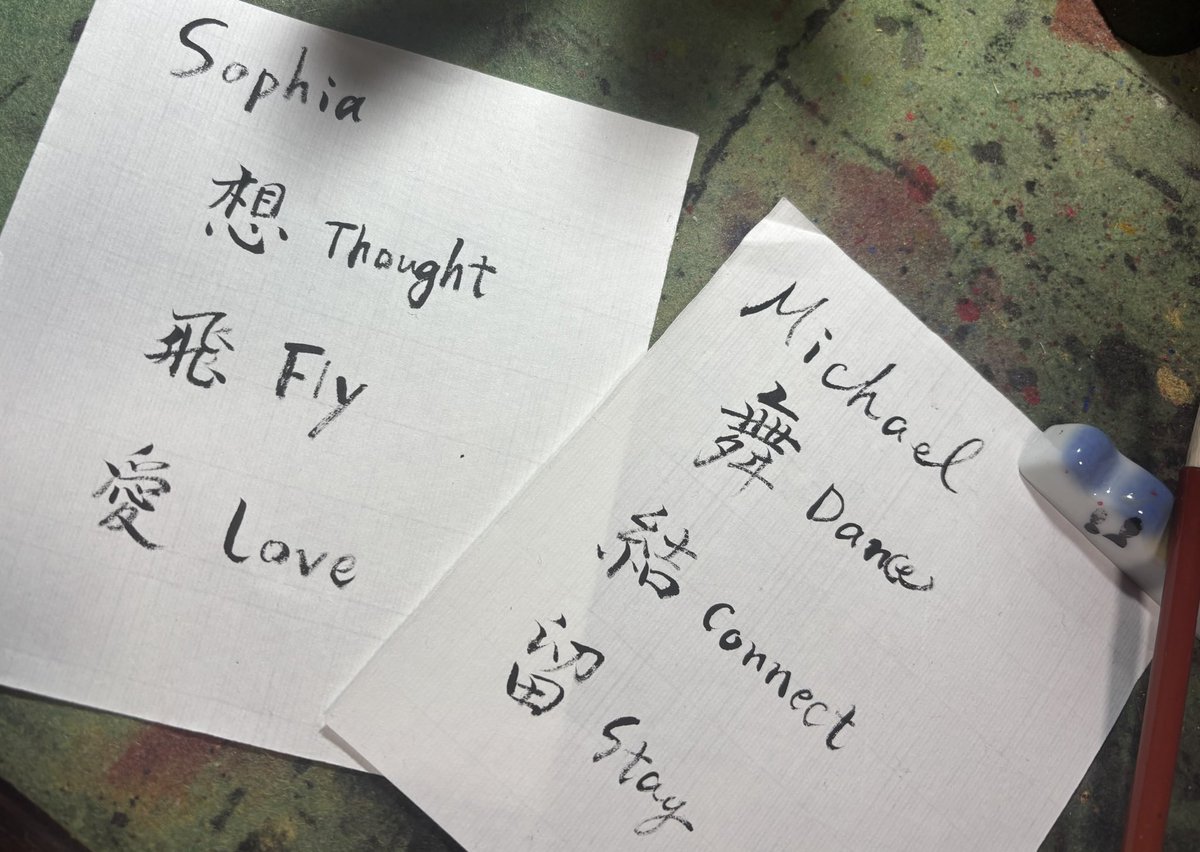 Sophia
想 Thought
飛 Fly
愛 Love
Michael
舞 Dance
結 Connect
留 Stay